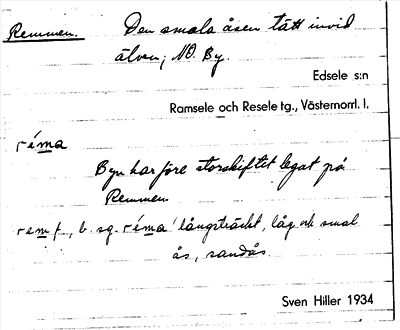 Remmen. Den smala åsen tätt invid
älven, NO. By.
Edsele s:n
Ramsele och Resele tg., Västernorrl. l.
réma
Byn har före storskiftet legat på
Remmen
rem f., b. sg. réma 'långsträckt, låg och smal
ås, sandås.
Sven Hiller 1934